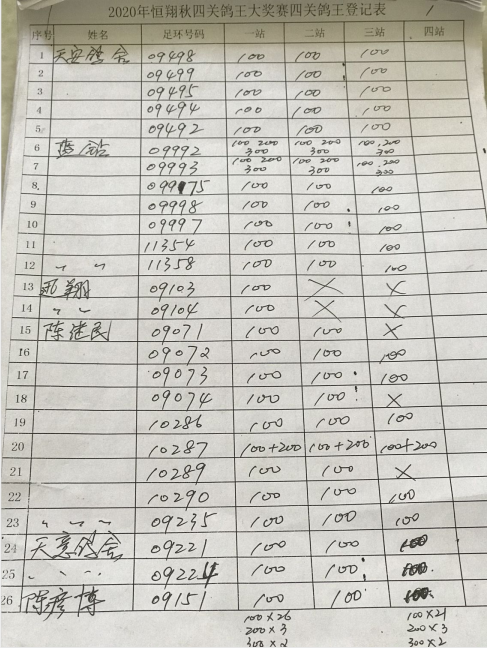 2020年恒翔秋四关鸽王大奖赛四关鸽王登记表
序号 姓名 足环号码 一站 二站 三站 四站
1 天安鸽舍 09498 100 100 100
2 09499 100 100 100
3 09495 100 100 100
4 09494 100 100 100
5 09492 100 100 100
6 09992 100 200 300 100 200 300 100.200 300
7 09993 100 200 300 100 200 300 100.200 300
8 09975 100 100 100
9 09998 100 100 100
10 09997 100 100 100
11 11354 100 100 100
12 〃 〃 11358 100 100 100
13 翔 09103 100 × ×
14 〃 〃 09104 100 × ×
15 陈建民 09071 100 100 ×
16 09072 100 100 100
17 09073 100 100 100
18 09074 100 100 ×
19 10286 100 100 100
20 10287 100+200 100+200 100+200
21 10289 100 100 ×
22 10290 100 100 100
23 〃 〃 〃 09235 100 100 100
24 天意鸽舍 09221 100 100 100
25 〃 〃 〃 09224 100 100 100
26 陈彦博 09151 100 100 100
100×26 100×21
200×3 200×3
300×2 300×2